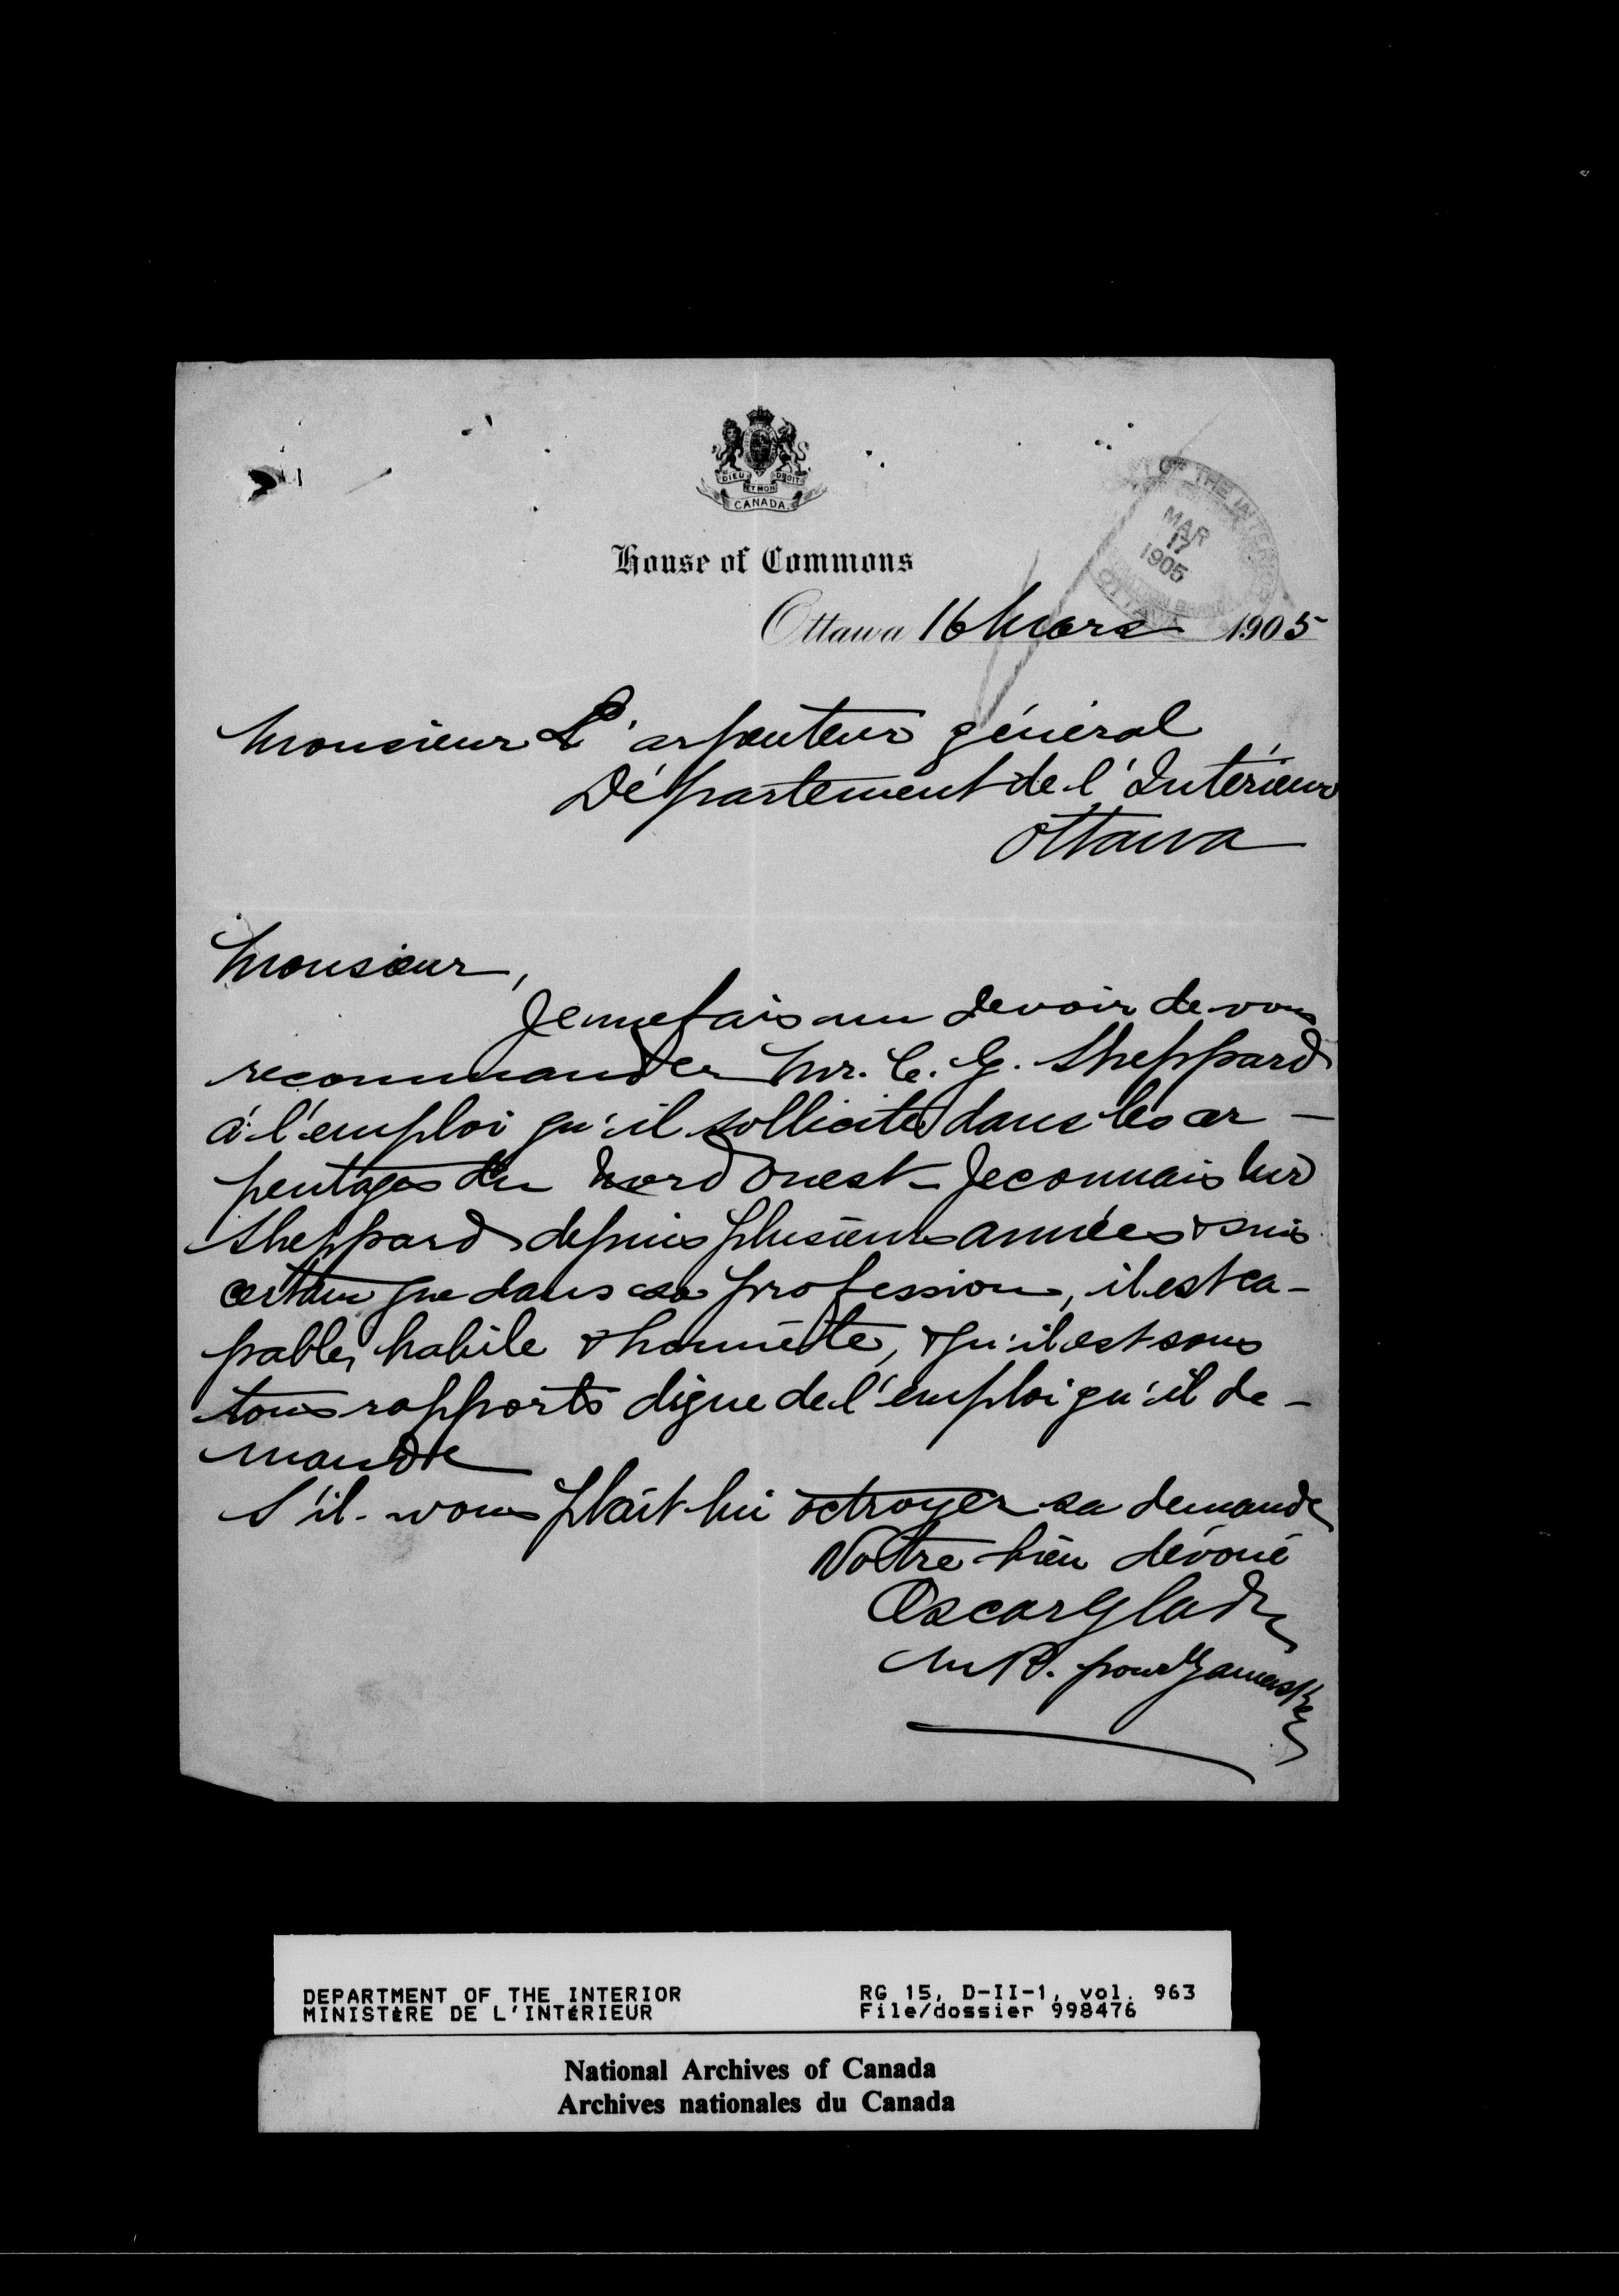 DIEU ET MON DROIT
CANADA
House of Commons
OF THE INTERIOR
MAR
17
1905
OTTAWA
Ottawa 16 Mars 1905
Monsieur L'arpenteur général
Département de l'Intérieur
Ottawa
Monsieur,
Je me fais un devoir de vous
recommander Mr. C. G. Sheppard
à l'emploi qu'il sollicite dans les ar-
pentages du Nord Ouest - Je connais Mr
Sheppard depuis plusieurs années & suis
certain que dans sa profession, il est ca-
pable, habile & honnête, & qu'il est sous
tous rapports digne de l'emploi qu'il de-
mande
S'il-vous plait lui octroyer sa demande
Votre bien dévoué
Oscar Gladu
M.P. pour Yamaska
DEPARTMENT OF THE INTERIOR RG 15, D-II-1, vol. 963
MINISTÈRE DE L'INTÉRIEUR File/dossier 998476
National Archives of Canada
Archives nationales du Canada